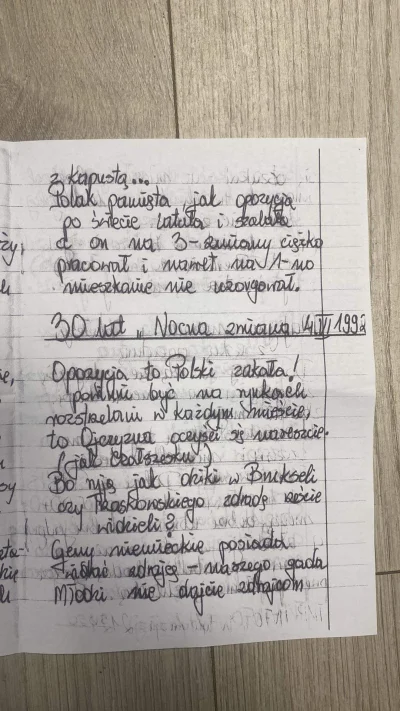 z kapustą...
Polak pamięta jak opozycja
po świecie latała i szalała
a on na 3-zmiany ciężko
pracował i nawet na M-no
mieszkanie nie
30 lat „Nocna zmiana 4.VI 1992
Opozycja to Polski zakała!
powinni być na rynkach
rozstrzelani w każdym mieście,
to Ojczyzna oczyści się wareszcie.
(jak
Bo ryją jak dziki w Brukseli
czy Traskowskiego zdradę żeście
widzieli?
Geny niemieckie posiada
widać zdrajcę - naszego gada
Młodzi nie dajcie zdrajcom
ży,